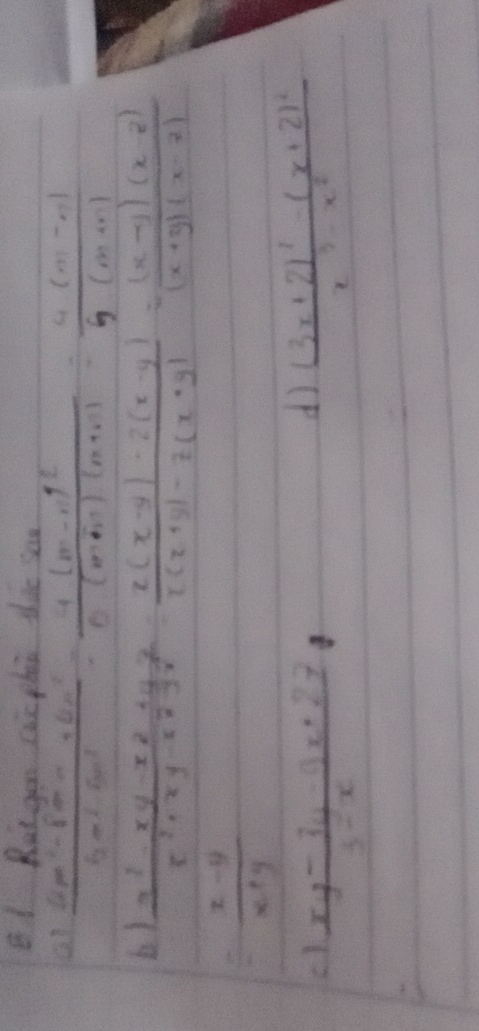 B1 Rút gọn các phân thức sau
a) 4m² - 8mn + 4n² / 5m² - 5n² = 4(m - n)² / 5(m - n)(m + n) = 4(m - n) / 5(m + n)
b) x² - xy - xz + yz / x² + xy - xz - yz = x(x - y) - z(x - y) / x(x + y) - z(x + y) = (x - y)(x - z) / (x + y)(x - z)
= x - y / x + y
c) xy - 3y - 9x + 27 / 3 - x d) (3x + 2)² - (x + 2)² / x³ - x²